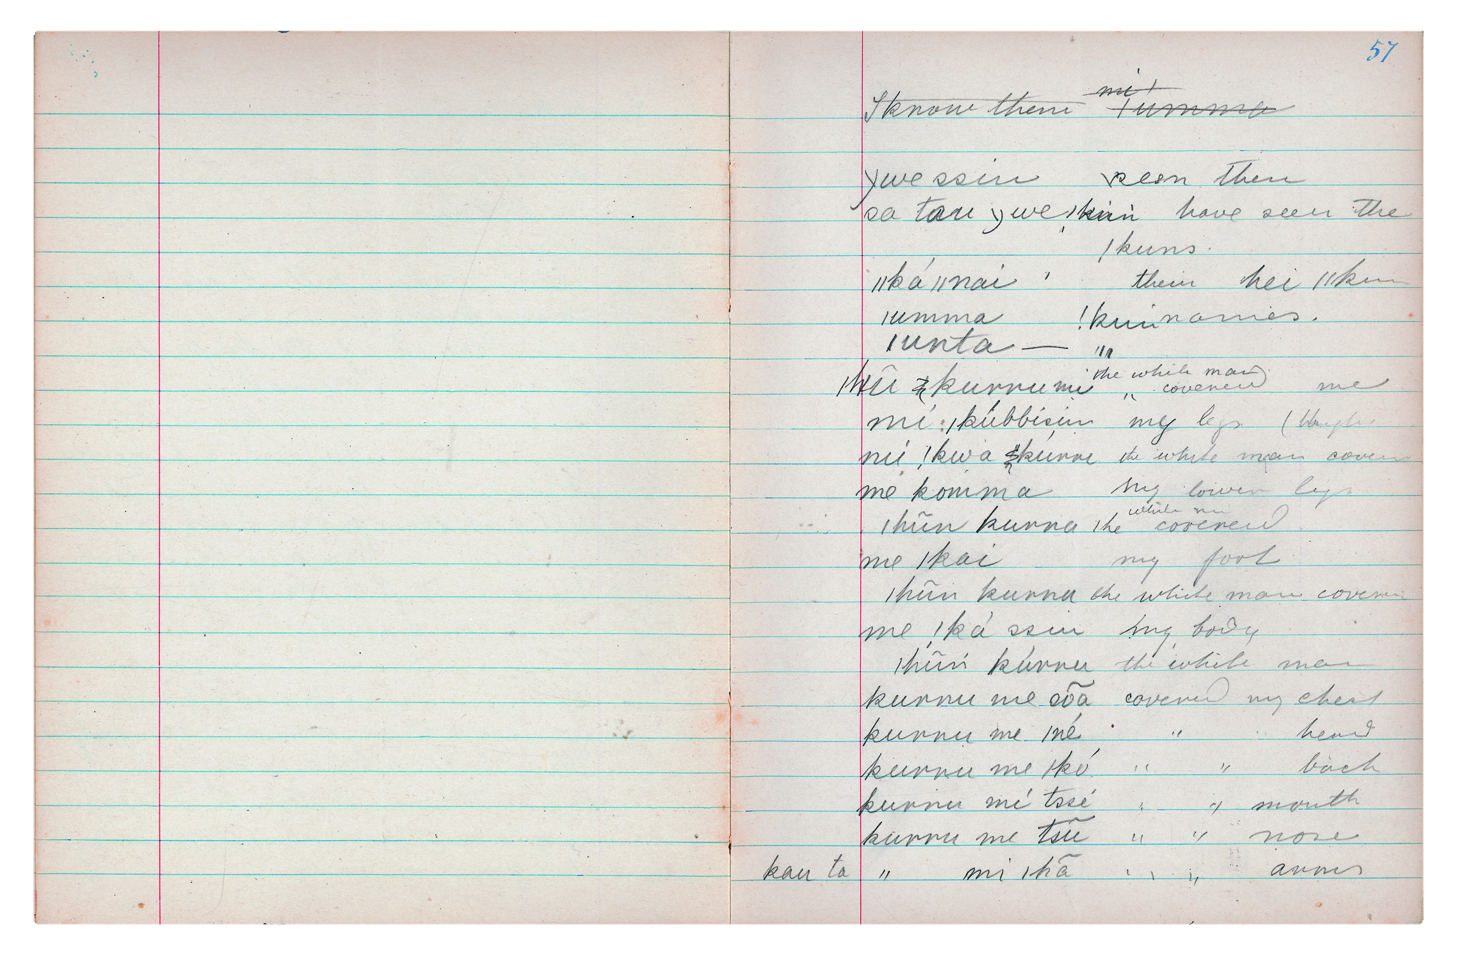 57
I know them mi! |umma
ywe ssin seen then
sa tau ywe !kuin have seen the
!kuns.
||ká ||nai them hei ||kun
|umma !kuin names.
|unta — "
|hũ kurru mi the white man covered me
mi |kúbbisin my legs
mi !kwa kúrru the white man covered
me komma my lower legs
|hũn kurru the white man covered
me |kai my foot
|hũn kurru the white man covered
me !ká ssin my body
|hũn kúrru the white man
kurru me sõa covered my chest
kurru me |né " head
kurru me |kó " " back
kurru mé tssé " " mouth
kurru me tsũ " " nose
kau ta " mi |kã " " arms